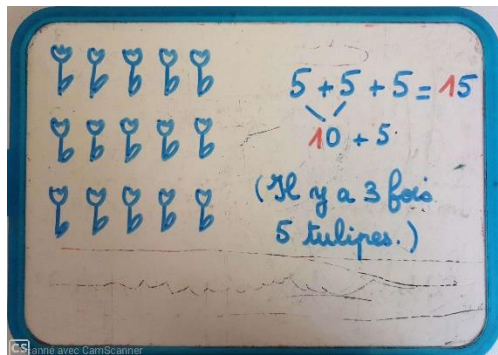 5 + 5 + 5 = 15
10 + 5
(Il y a 3 fois
5 tulipes.)
CS Scanné avec CamScanner